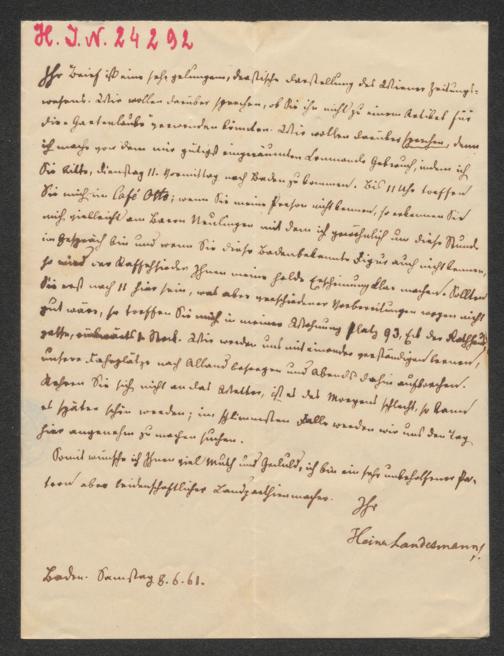 H. I. N. 24292
Ihr Brief ist eine sehr gelungene, drastische Darstellung des Wiener Zeitungs-
wesens. Wir wollen darüber sprechen, ob Sie ihn nicht zu einem Artikel für
die "Gartenlaube" verwenden könnten. Wir wollen darüber sprechen, denn
ich mache von dem mir gütigst eingeräumten Commando Gebrauch, indem ich
Sie bitte, Dienstag 11. Vormittag nach Baden zu kommen. Bis 11 Uhr treffen
Sie mich im Café Otto; wenn Sie meine Person nicht kennen, so erkennen Sie
mich vielleicht an Baron Neulingen mit dem ich gewöhnlich um diese Stunde
im Gespräch bin und wenn Sie diese Badenbekannte Figur auch nicht kennen,
so wird der Kaffehsieder Ihnen meine holde Erscheinung klar machen. Sollten
Sie erst nach 11 hier sein, was aber verschiedener Vorbereitungen wegen nicht
gut wäre, so treffen Sie mich in meiner Wohnung Platz 93, Eck der Rathhaus
gasse, Stock. Wir werden uns miteinander verständigen lernen,
unsere Fahrplätze nach Alland besorgen und Abends dahin aufbrechen.
Kehren Sie sich nicht an das Wetter, ist es des Morgens schlecht, so kann
es später schön werden; im schlimmsten Falle werden wir uns den Tag
hier angenehm zu machen suchen.
Somit wünsche ich Ihnen viel Muth und Geduld, ich bin ein sehr unbeholfener Pa-
tron aber leidenschaftlicher Landparthienmacher.
Ihr
Heinr Landesmann
Baden. Samstag 8.6.61.